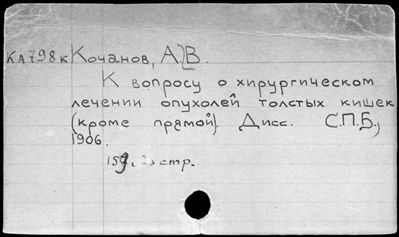 КА798к Кочанов, А.В.
К вопросу о хирургическом
лечении опухолей толстых кишек
(кроме прямой). Дисс. С.П.Б.,
1906.
159, стр.